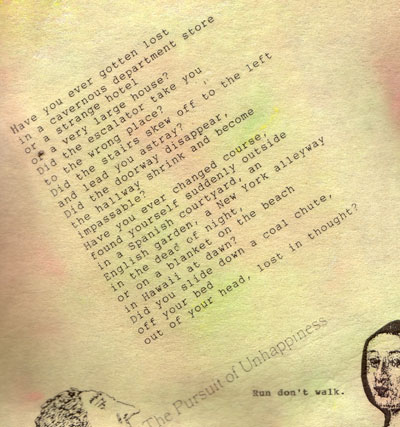 Have you ever gotten lost
in a cavernous department store
or a strange hotel
or a very large house?
Did the escalator take you
to the wrong place?
Did the stairs skew off to the left
and lead you astray?
Did the doorway disappear,
the hallway shrink and become
impassable?
Have you ever changed course,
found yourself suddenly outside
in a Spanish courtyard, an
English garden, a New York alleyway
in the dead of night,
or on a blanket on the beach
in Hawaii at dawn?
Did you slide down a coal chute,
off your bed
out of your head, lost in thought?
The Pursuit of Unhappiness
Run don't walk.